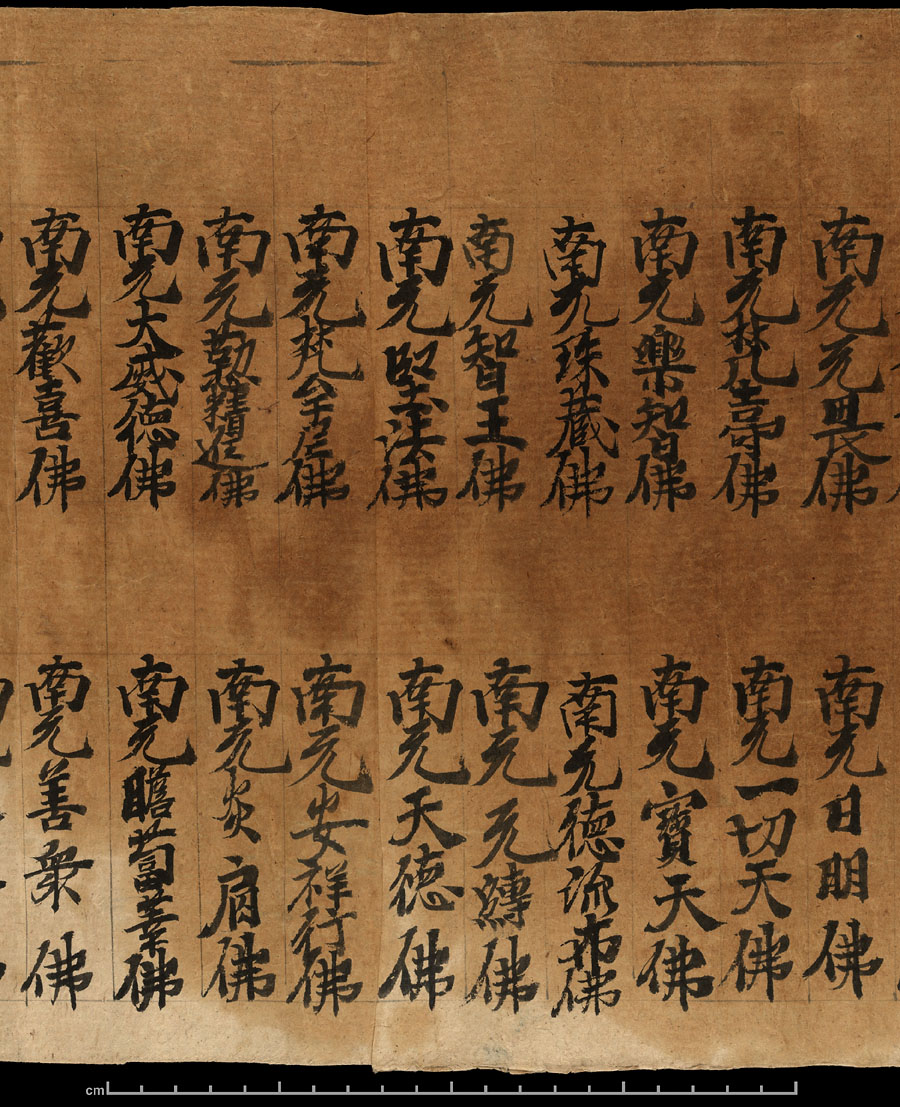 南无无畏佛
南无日明佛
南无梵壽佛
南无一切天佛
南无樂智佛
南无寶天佛
南无珠藏佛
南无德流布佛
南无智王佛
南无无縛佛
南无堅法佛
南无天德佛
南无梵牟尼佛
南无安祥行佛
南无勤精進佛
南无炎肩佛
南无大威德佛
南无瞻蔔華佛
南无歡喜佛
南无善衆佛
cm